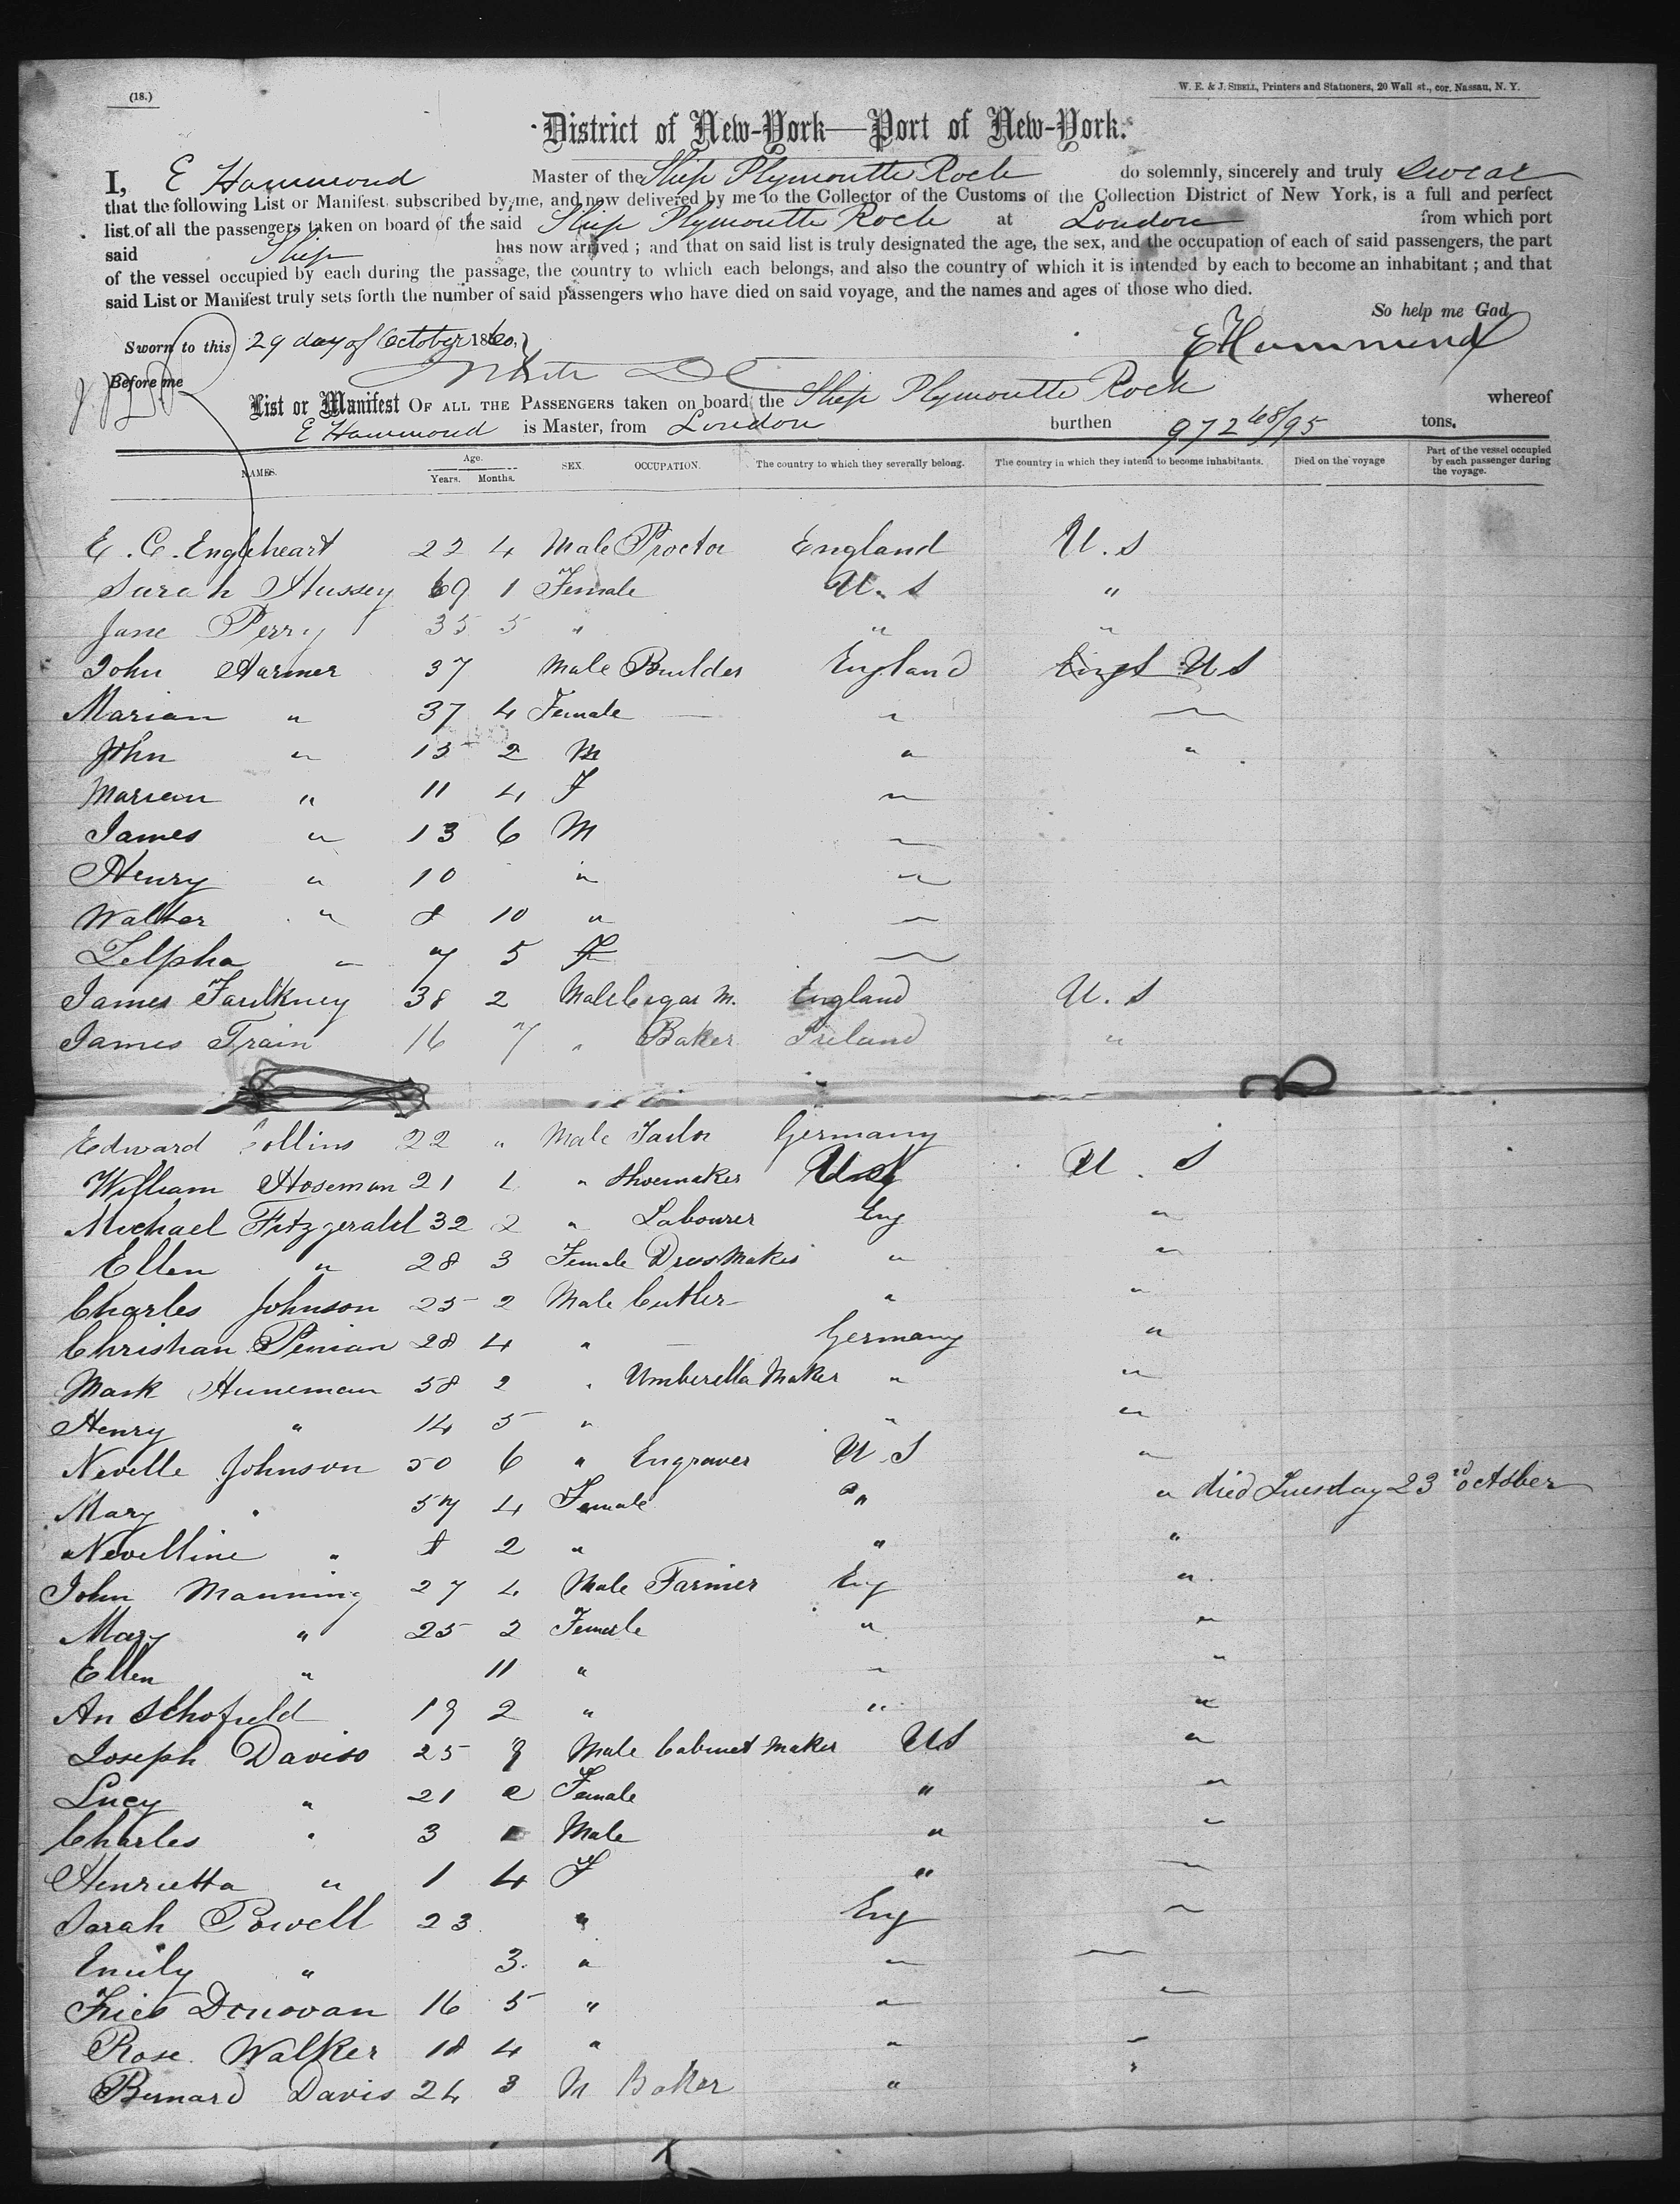 (18.)
W. E. & J. SIBELL, Printers and Stationers, 20 Wall st., cor. Nassau, N. Y.
District of New-York—Port of New-York.
I, E Hammond Master of the Ship Plymoutte Rock do solemnly, sincerely and truly swear
that the following List or Manifest subscribed by me, and now delivered by me to the Collector of the Customs of the Collection District of New York, is a full and perfect
list of all the passengers taken on board of the said Ship Plymoutte Rock at London from which port
said Ship has now arrived ; and that on said list is truly designated the age, the sex, and the occupation of each of said passengers, the part
of the vessel occupied by each during the passage, the country to which each belongs, and also the country of which it is intended by each to become an inhabitant ; and that
said List or Manifest truly sets forth the number of said passengers who have died on said voyage, and the names and ages of those who died.
So help me God
Sworn to this 29 day of October 1860, E Hammond
Before me
List or Manifest OF ALL THE PASSENGERS taken on board the Ship Plymoutte Rock whereof
E Hammond is Master, from London burthen 972 68/95 tons.
NAMES. Age. Years. Months. SEX. OCCUPATION. The country to which they severally belong. The country in which they intend to become inhabitants. Died on the voyage Part of the vessel occupied by each passenger during the voyage.
E. C. Engleheart 22 4 Male Proctor England U. S
Sarah Hussey 69 1 Female U. S "
Jane Perry 35 5 " " "
John Harmer 37 Male Builder England Engl U S
Marian " 37 4 Female — " "
John " 13 2 M " "
Marian " 11 4 F "
James " 13 6 M "
Henry " 10 " "
Walter " 8 10 " "
Zelpha " 7 5 F "
James Faulkney 38 2 Male Cegar M. England U. S
James Train 16 7 " Baker Ireland "
Edward Collins 22 " Male Tailor Germany
William Hoseman 21 1 " Shoemaker U S U. S
Michael Fitzgerald 32 2 " Labourer Eng "
Ellen " 28 3 Female Dress Maker " "
Charles Johnson 25 2 Male Cutler " "
Christian Penian 28 4 " — Germany "
Mark Huneman 58 2 " Umberella Maker " "
Henry " 14 5 " " "
Nevelle Johnson 50 6 " Engraver U. S "
Mary " 57 4 Female " " died Tuesday 23rd October
Nevelline " 8 2 " " "
John Manning 27 4 Male Farmer Eng "
Mary " 25 2 Female " "
Ellen " 11 " " "
An Schofield 19 2 " " "
Joseph Daviso 25 9 Male Cabinet Maker US "
Lucy " 21 2 Female " "
Charles " 3 Male " "
Henrietta " 1 4 F " "
Sarah Powell 23 " Eng "
Emily " 3 " " "
Donovan 16 5 " " "
Rose Walker 18 4 " " "
Bernard Davis 24 3 M Baker " "